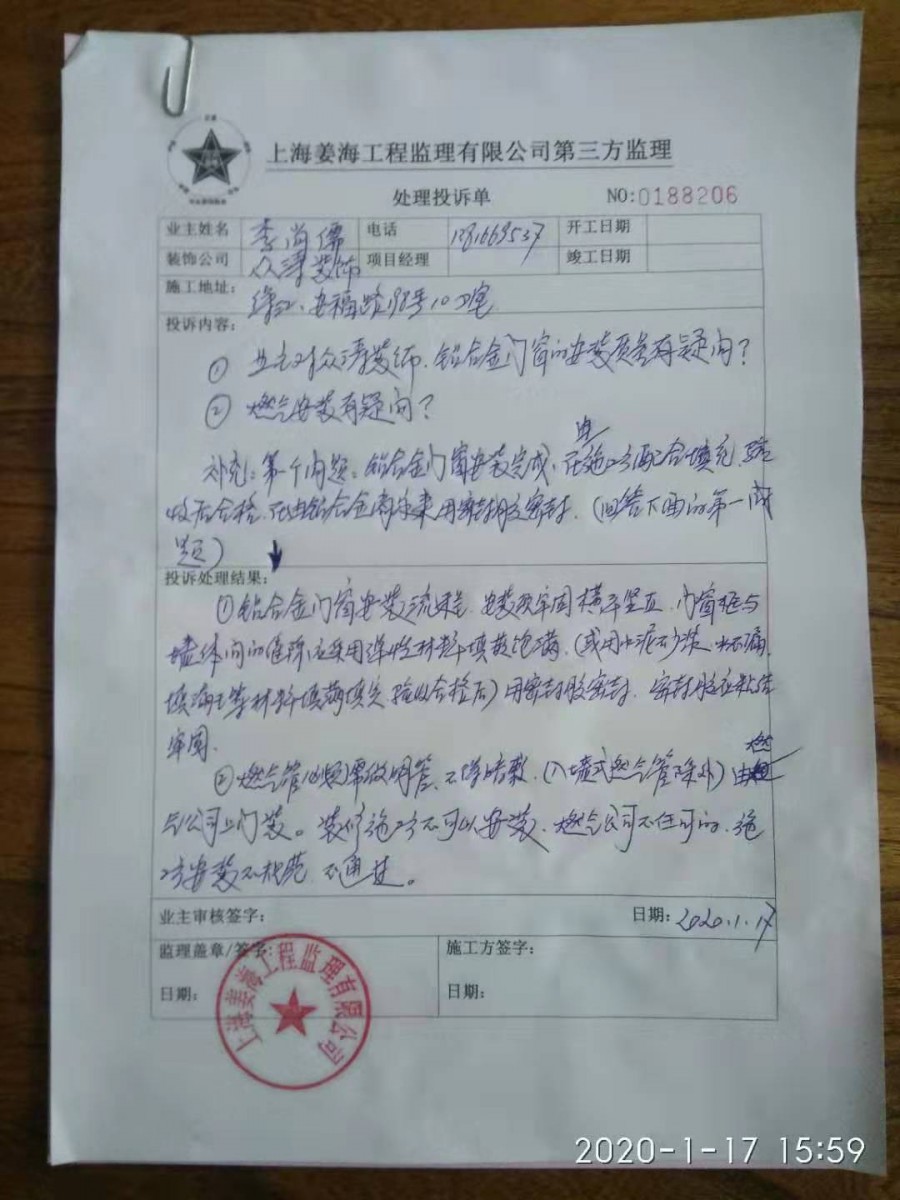 上海姜海工程监理有限公司第三方监理
处理投诉单
NO:0188206
业主姓名 李尚儒 电话 开工日期
装饰公司 众涛装饰 项目经理 竣工日期
施工地址: 安福路 号
投诉内容:
① 业主对众涛装饰、铝合金门窗的安装质量有疑问?
② 燃气安装有疑问?
由
补充:第一个问题:铝合金门窗安装完成、施工方配合填充、验
收后合格、用密封胶密封.(回答下面的第一问
题)
投诉处理结果:
①铝合金门窗安装流程、安装须牢固横平竖直、门窗框与
墙体间的缝隙应采用弹性材料填嵌饱满、(或用水泥砂浆、
验收合格后)用密封胶密封、密封胶应粘结
牢固.
燃
②燃气管必须需做明管、(入墙式燃气管除外)由
气公司上门装。装修施工方不可以安装、燃气公司不任可的、施
工方安装不规范、不通过。
业主审核签字: 日期: 2020.1.17
监理盖章/签字: 施工方签字:
日期: 日期:
上海姜海工程监理有限公司
2020-1-17 15:59